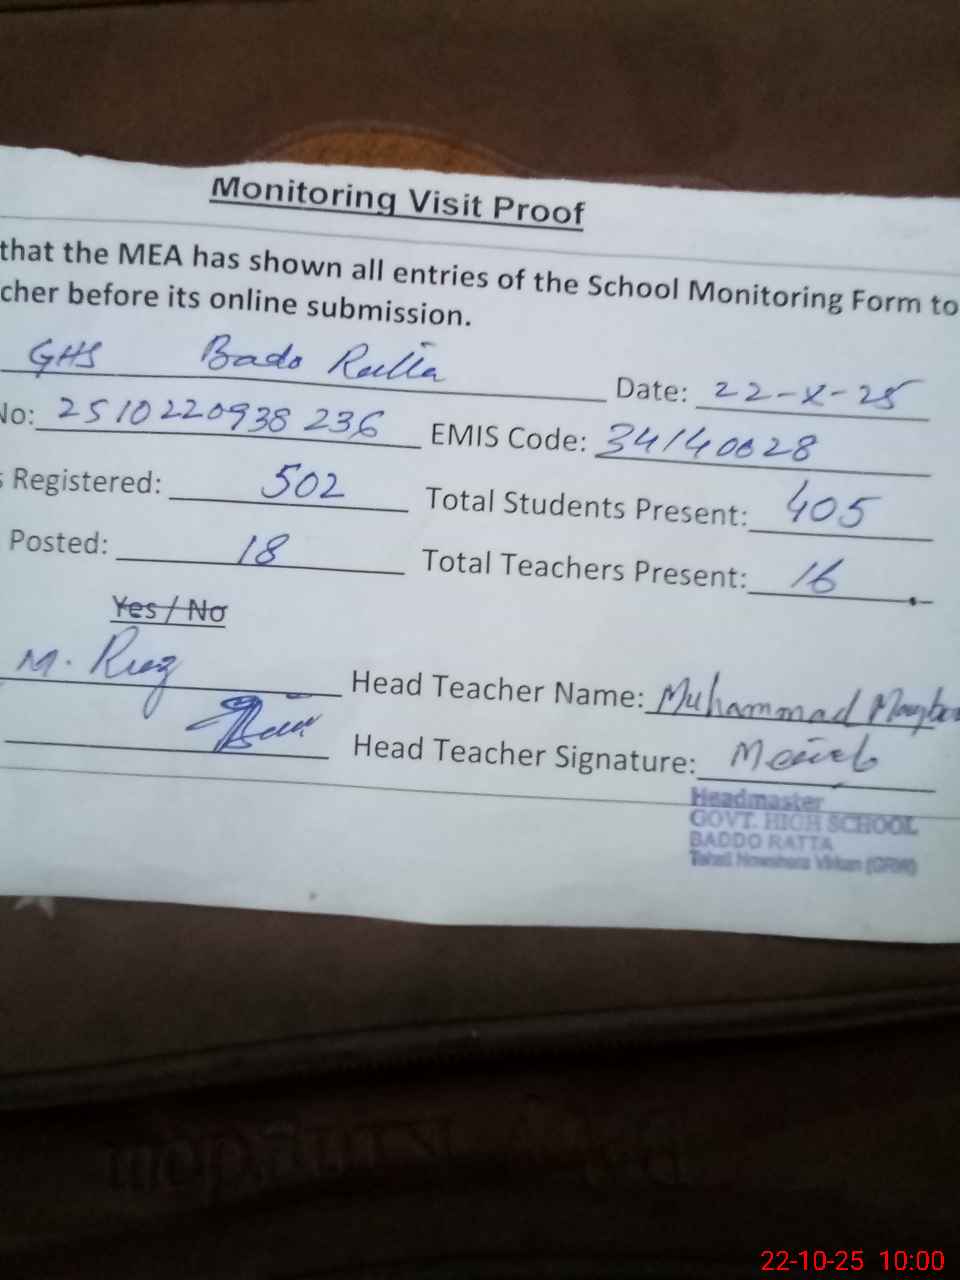 Monitoring Visit Proof
that the MEA has shown all entries of the School Monitoring Form to
cher before its online submission.
GHS Bado Ratta Date: 22-X-25
No: 2510220938 236 EMIS Code: 34140028
s Registered: 502 Total Students Present: 405
Posted: 18 Total Teachers Present: 16
Yes / No
M. Riaz Head Teacher Name: Muhammad
Head Teacher Signature:
Headmaster
GOVT. HIGH SCHOOL
BADDO RATTA
Tehsil Nowshera Virkan (GRW)
22-10-25 10:00